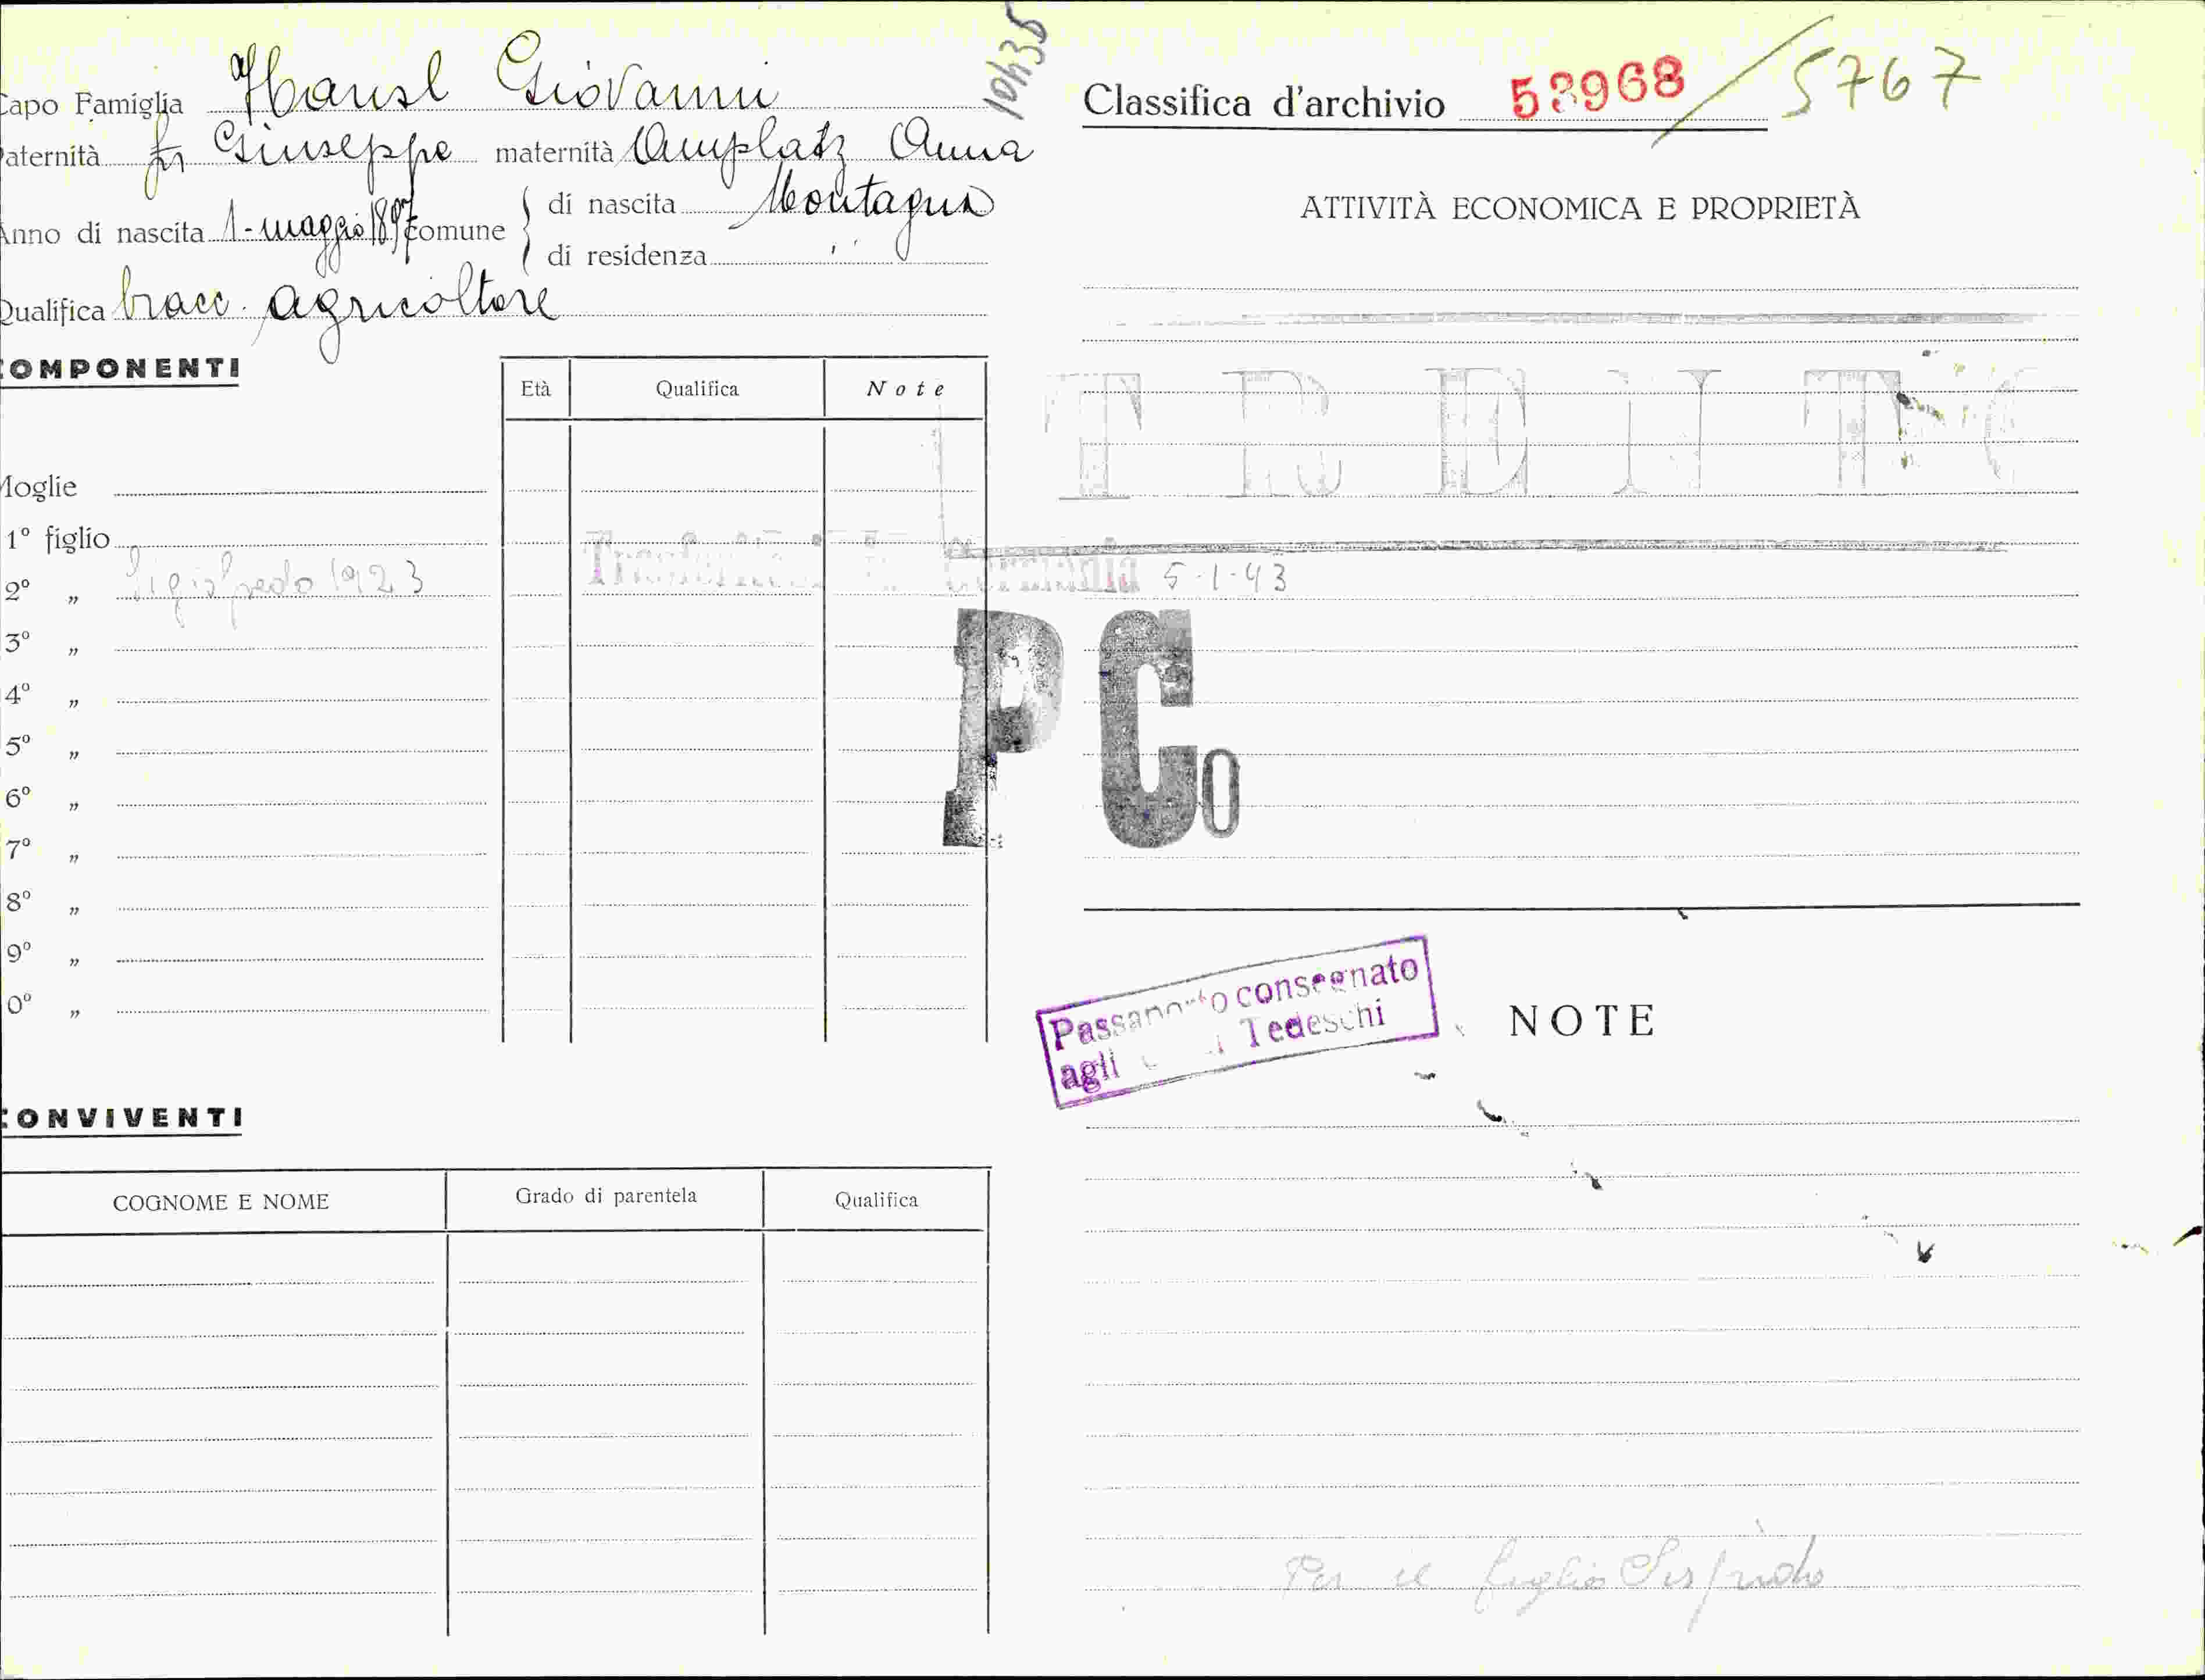 Capo Famiglia Hausl Giovanni
Paternità fu Giuseppe maternità Amplatz Anna
Anno di nascita 1-maggio 1897 comune di nascita Montagna
di residenza " "
Qualifica bracc. agricoltore
COMPONENTI
Età Qualifica Note
Moglie
1º figlio
2º „ Sigisfredo 1923
3º „
4º „
5º „
6º „
7º „
8º „
9º „
0º „
CONVIVENTI
COGNOME E NOME Grado di parentela Qualifica
10435
Classifica d'archivio 53968 / 5767
ATTIVITÀ ECONOMICA E PROPRIETÀ
TRENTO
Trasferito in Germania 5-1-43
PCo
Passaporto consegnato
agli Tedeschi
NOTE
Per il foglio